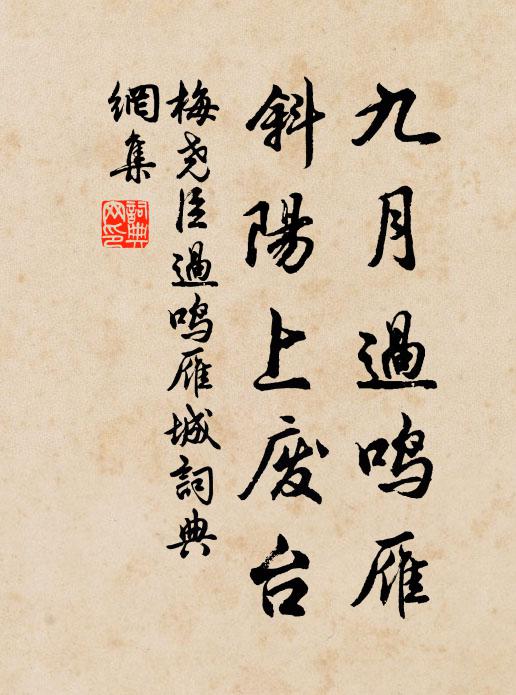 九月過鸣雁
斜陽上废台
梅尧臣過鸣雁城詞典
網集
詞典
网印